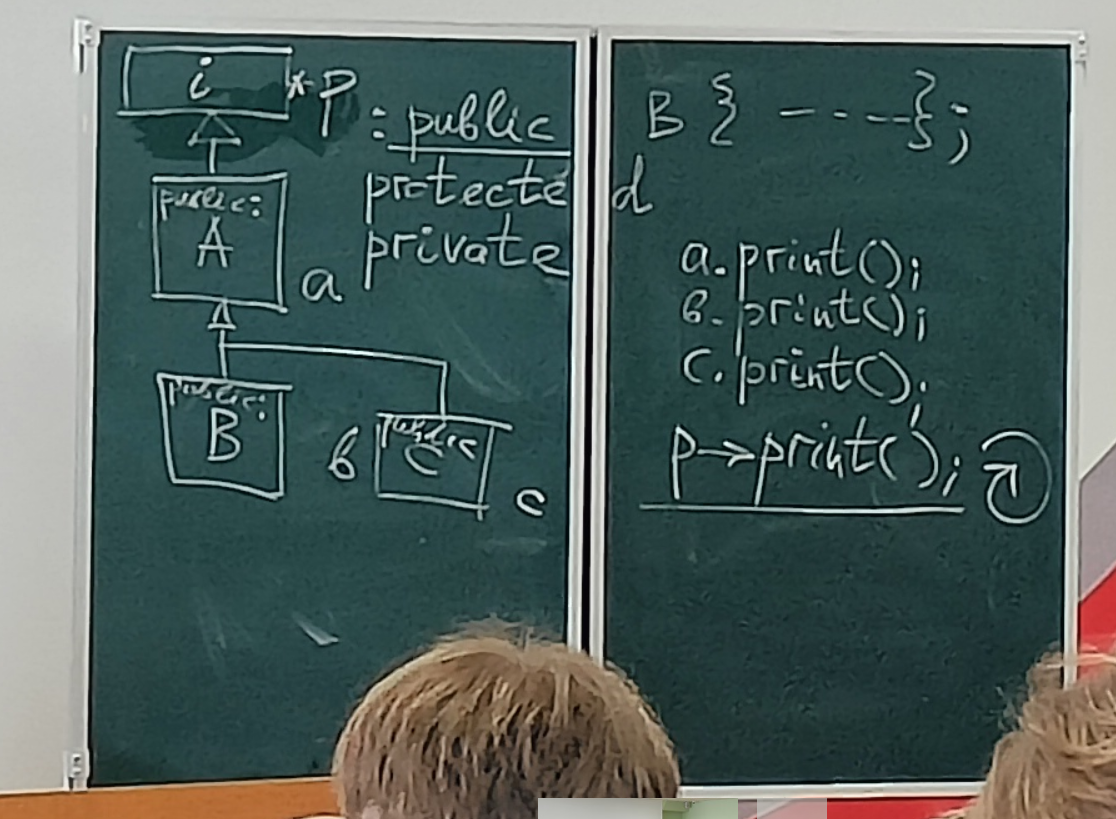 i *p
: public
protected
private
public:
A
a
public:
B
в
public
C
c
B { - - - - };
a.print();
в.print();
c.print();
p→print();